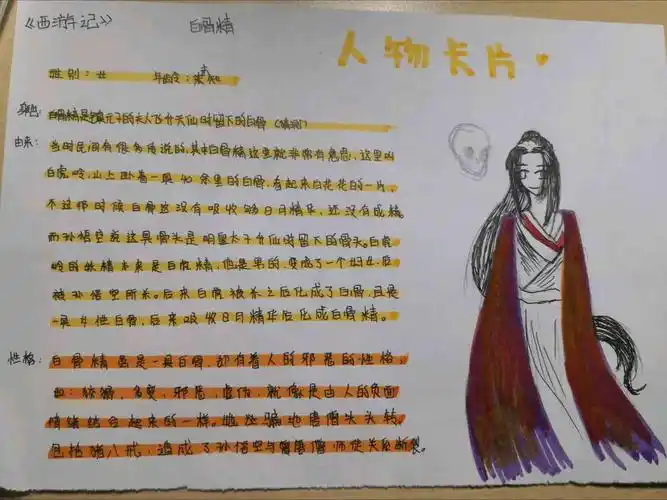 《西游记》 白骨精
人物卡片
性别：女 年龄：未知
身世：白骨精是镇元子的夫人飞升天仙时留下的白骨（猜测）
由来：当时民间有很多传说的，其中白骨精这里就非常有意思，这里叫
白虎岭，山上卧着一具40余里的白骨，看起来白花花的一片，
不过那时候白骨还没有吸收够日月精华，还没有成精，
而孙悟空说这具骨头是明星太子升仙时留下的骨头。白虎
岭的妖精本来是白虎精，他是男的，变成了一个妇女，后
被孙悟空所杀。后来白虎被杀之后化成了白骨，且是
一具女性白骨，后来吸收日月精华后化成白骨精。
性格：白骨精虽是一具白骨，却有着人的邪恶的性格，
如：狡猾，多变，邪恶，虚伪，就像是由人的负面
情绪结合起来的一样。她还骗地唐僧头头转，
包括猪八戒，造成了孙悟空与唐僧师徒关系断裂。